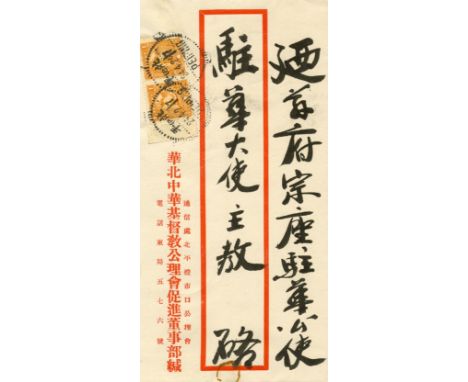 廼茲府宗座駐華公使
駐華大使主教
通信處北平燈市口公理會
華北中華基督敎公理會促進董事部緘
電話東局五七六號
PEIPING